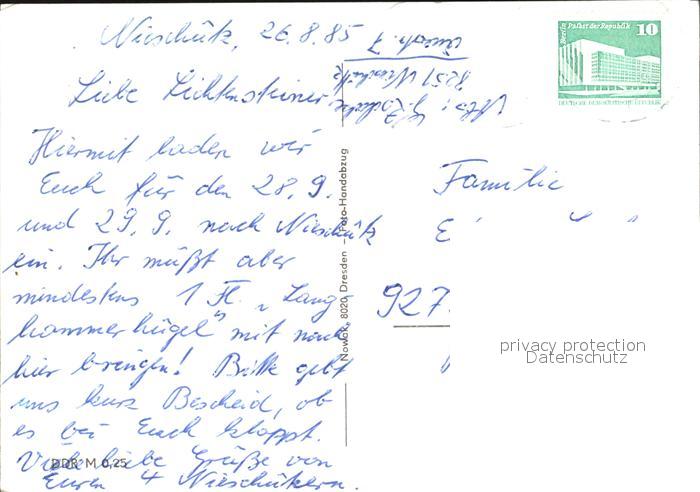 Nieschütz, 26.8.85
Liebe Lichtensteiner,
Hiermit laden wir
Euch für den 28.9.
und 29.9. nach Nieschütz
ein. Ihr müßt aber
mindestens 1 Fl. „Lang-
hammerhügel“ mit nach
hier bringen! Bitte gebt
uns kurz Bescheid, ob
es bei Euch klappt.
Viele liebe Grüße von
Euren 4 Nieschützern.
DDR M 0,25
Abs.: G.
8251 Nieschütz
Nr. 7
Nowak, 8020 Dresden – Foto-Handabzug
Berlin Palast der Republik 10
DEUTSCHE DEMOKRATISCHE REPUBLIK
Familie
E
927
privacy protection
Datenschutz